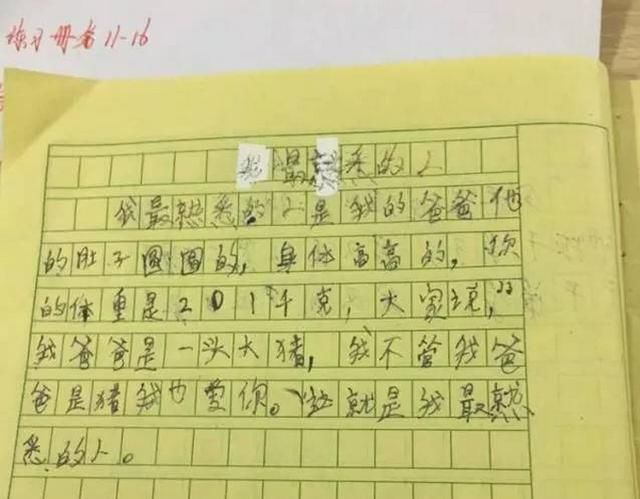 练习册名11-16
我最熟悉的人
我最熟悉的人是我的爸爸他
的肚子圆圆的,身体高高的,你
的体重是201千克,大家说,“
我爸爸是一头大猪,我不管我爸
爸是猪我也爱你。”这就是我最熟
悉的人。